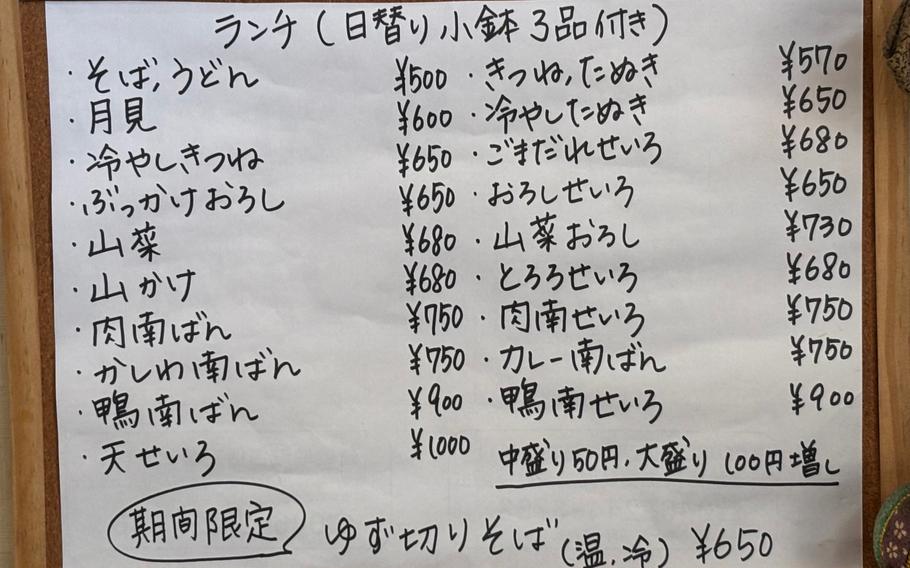 ランチ(日替り小鉢3品付き)
・そば,うどん ¥500
・月見 ¥600
・冷やしきつね ¥650
・ぶっかけおろし ¥650
・山菜 ¥680
・山かけ ¥680
・肉南ばん ¥750
・かしわ南ばん ¥750
・鴨南ばん ¥900
・天せいろ ¥1000
・きつね,たぬき ¥570
・冷やしたぬき ¥650
・ごまだれせいろ ¥680
・おろしせいろ ¥650
・山菜おろし ¥730
・とろろせいろ ¥680
・肉南せいろ ¥750
・カレー南ばん ¥750
・鴨南せいろ ¥900
中盛り50円,大盛り100円増し
期間限定 ゆず切りそば(温,冷) ¥650